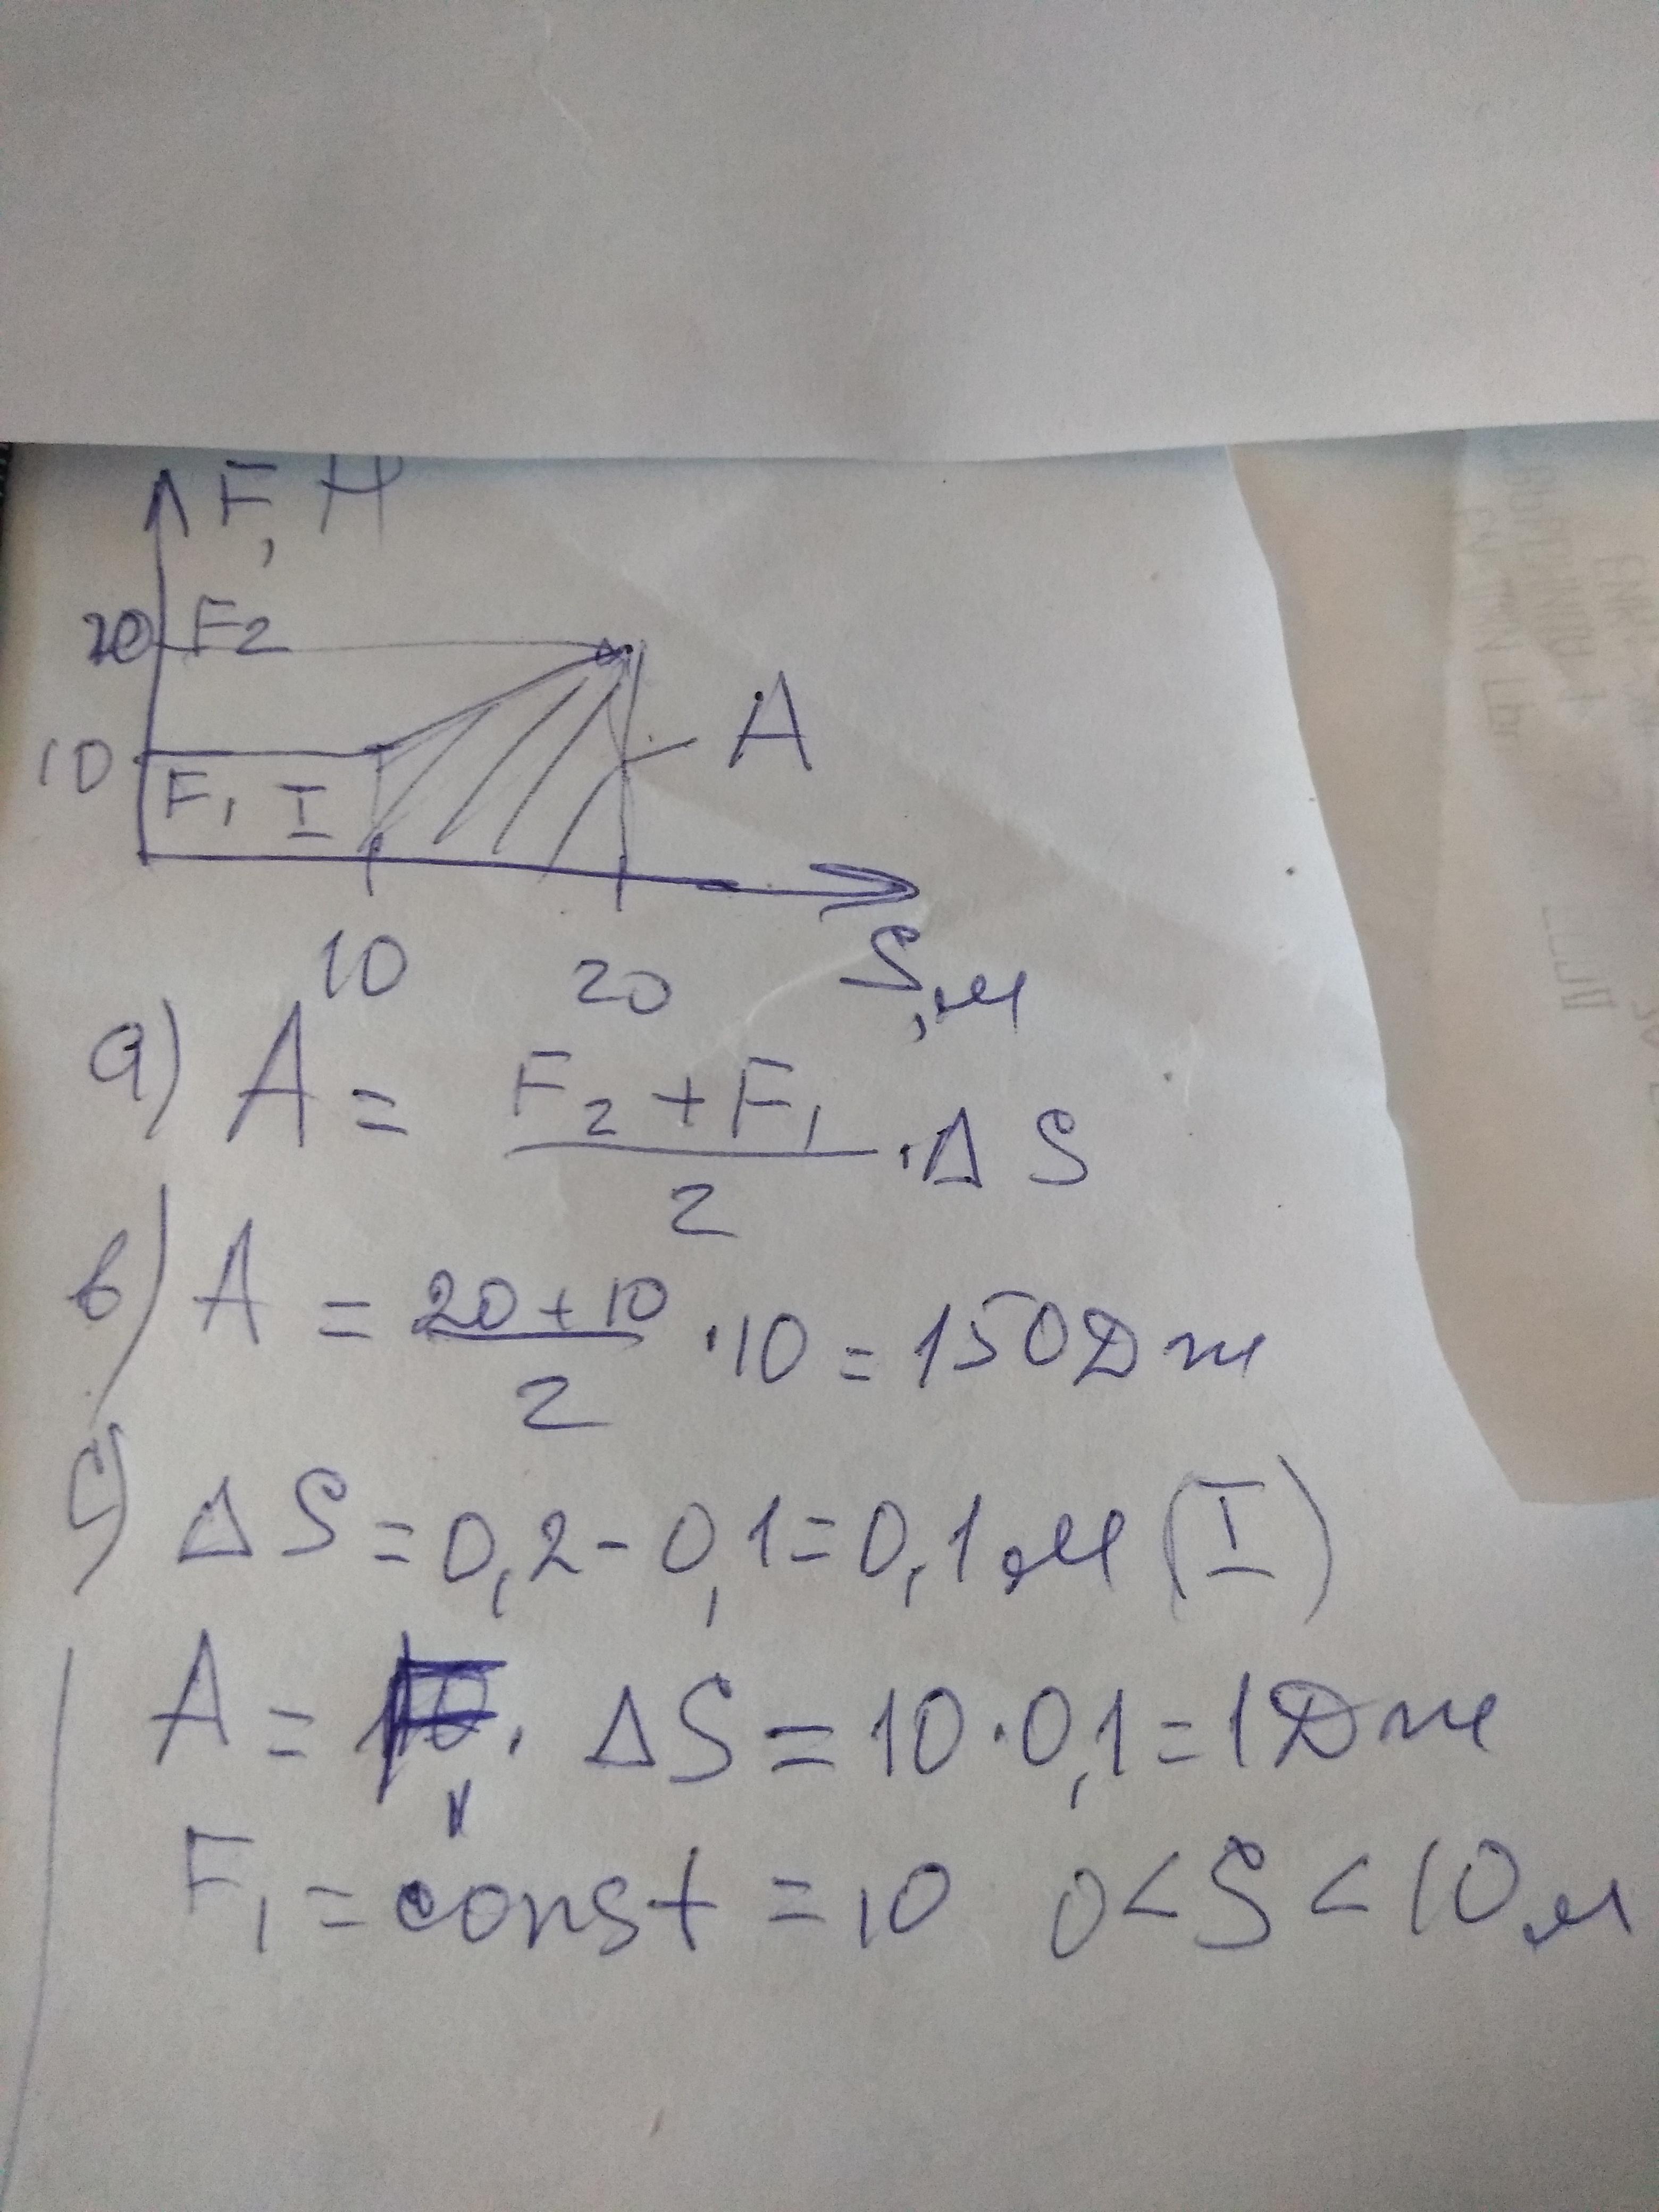 F, H
20 F2
10
F1 I
A
10 20 S, м
a) A = F2 + F1 / 2 · Δ S
в) A = 20 + 10 / 2 · 10 = 150 Дж
с) Δ S = 0,2 - 0,1 = 0,1 м (I)
A = F · Δ S = 10 · 0,1 = 1 Дж
F1 = const = 10 0 < S < 10 м